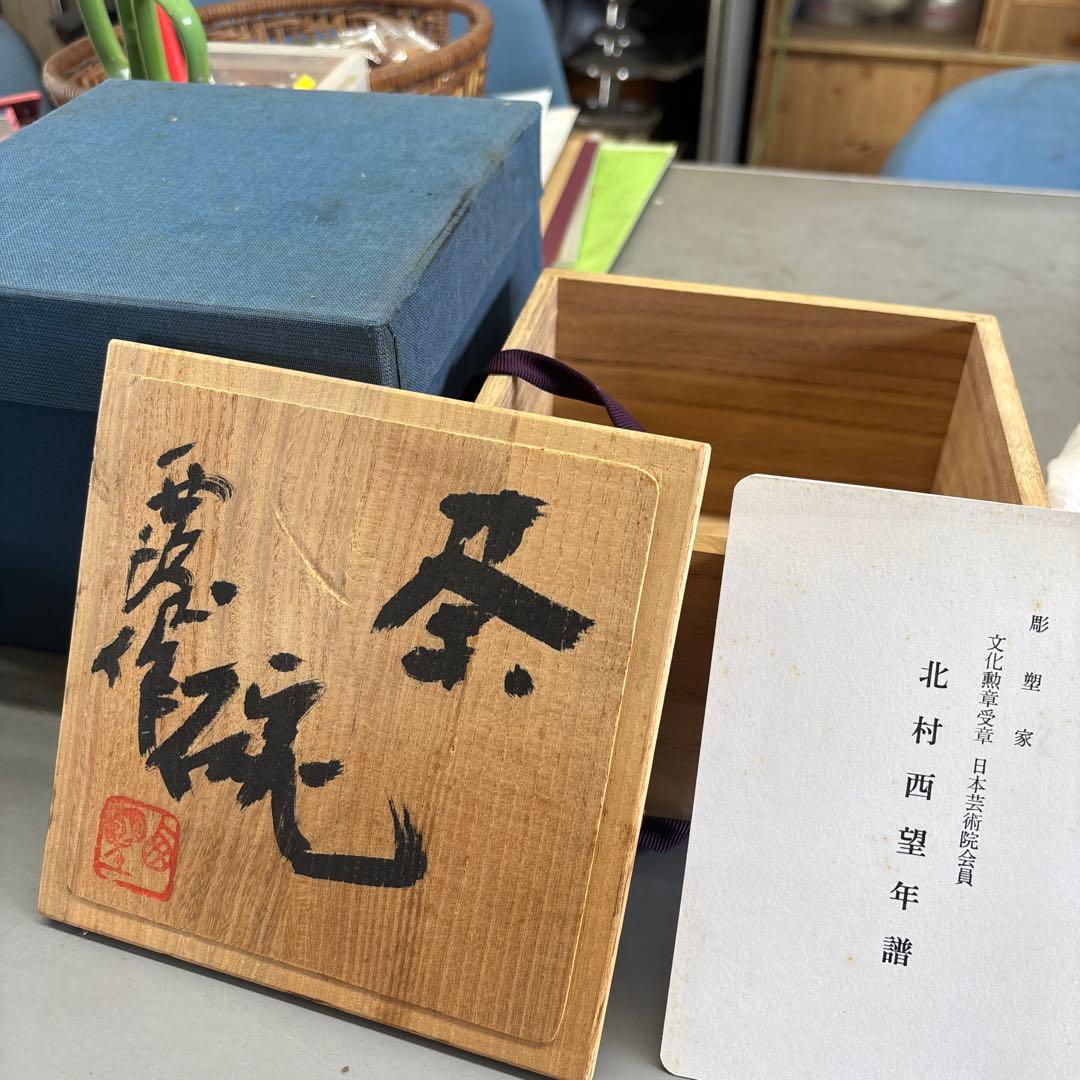 茶
碗
西望作
彫塑家
文化勲章受章 日本芸術院会員
北村西望年譜